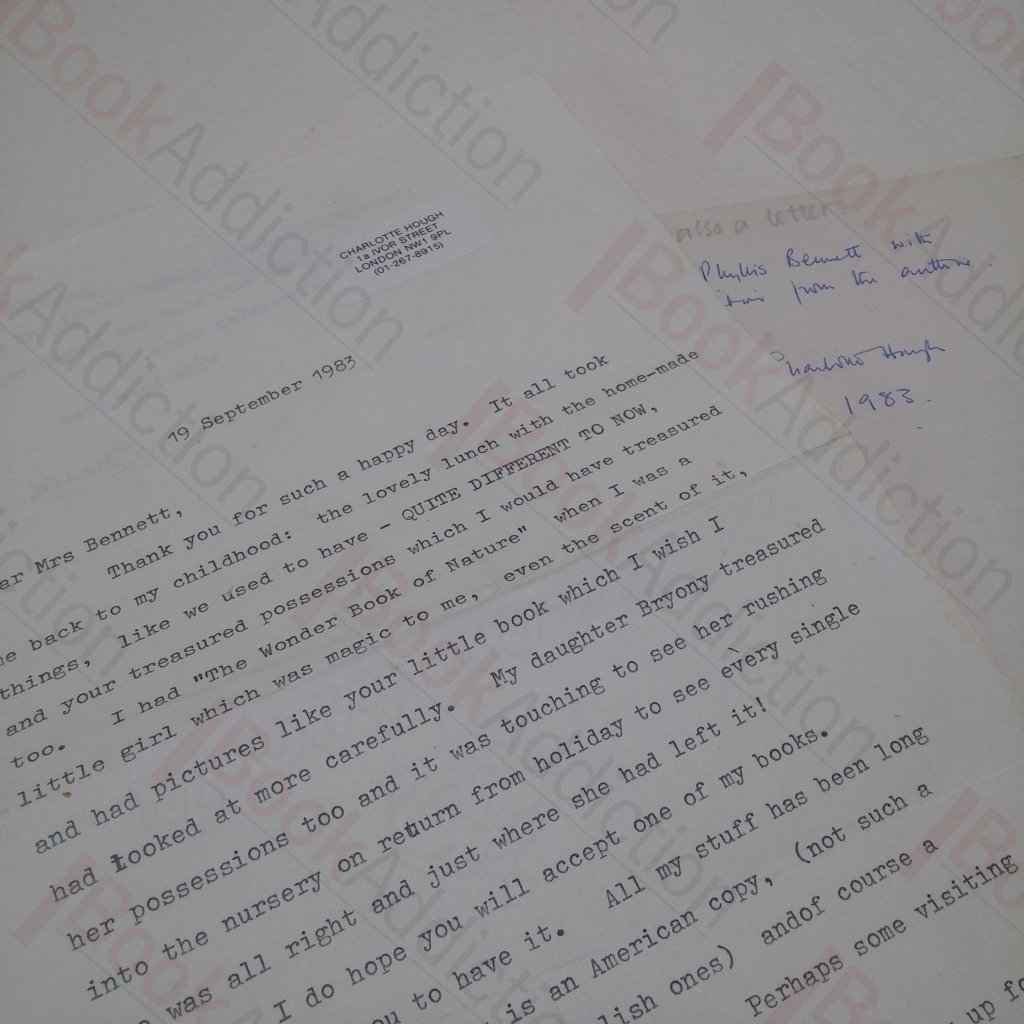 CHARLOTTE HOUGH
1a IVOR STREET
LONDON NW1 9PL
(01-267-8915)
also a letter
Phyllis Bennett with
from the author.
Charlotte Hough
1983.
19 September 1983
ar Mrs Bennett,
Thank you for such a happy day. It all took
e back to my childhood: the lovely lunch with the home-made
things, like we used to have - QUITE DIFFERENT TO NOW,
and your treasured possessions which I would have treasured
too. I had "The Wonder Book of Nature" when I was a
little girl which was magic to me, even the scent of it,
and had pictures like your little book which I wish I
had looked at more carefully. My daughter Bryony treasured
her possessions too and it was touching to see her rushing
into the nursery on return from holiday to see every single
was all right and just where she had left it!
I do hope you will accept one of my books.
u to have it. All my stuff has been long
is an American copy, (not such a
lish ones) andof course a
Perhaps some visiting
up fo
BookAddiction